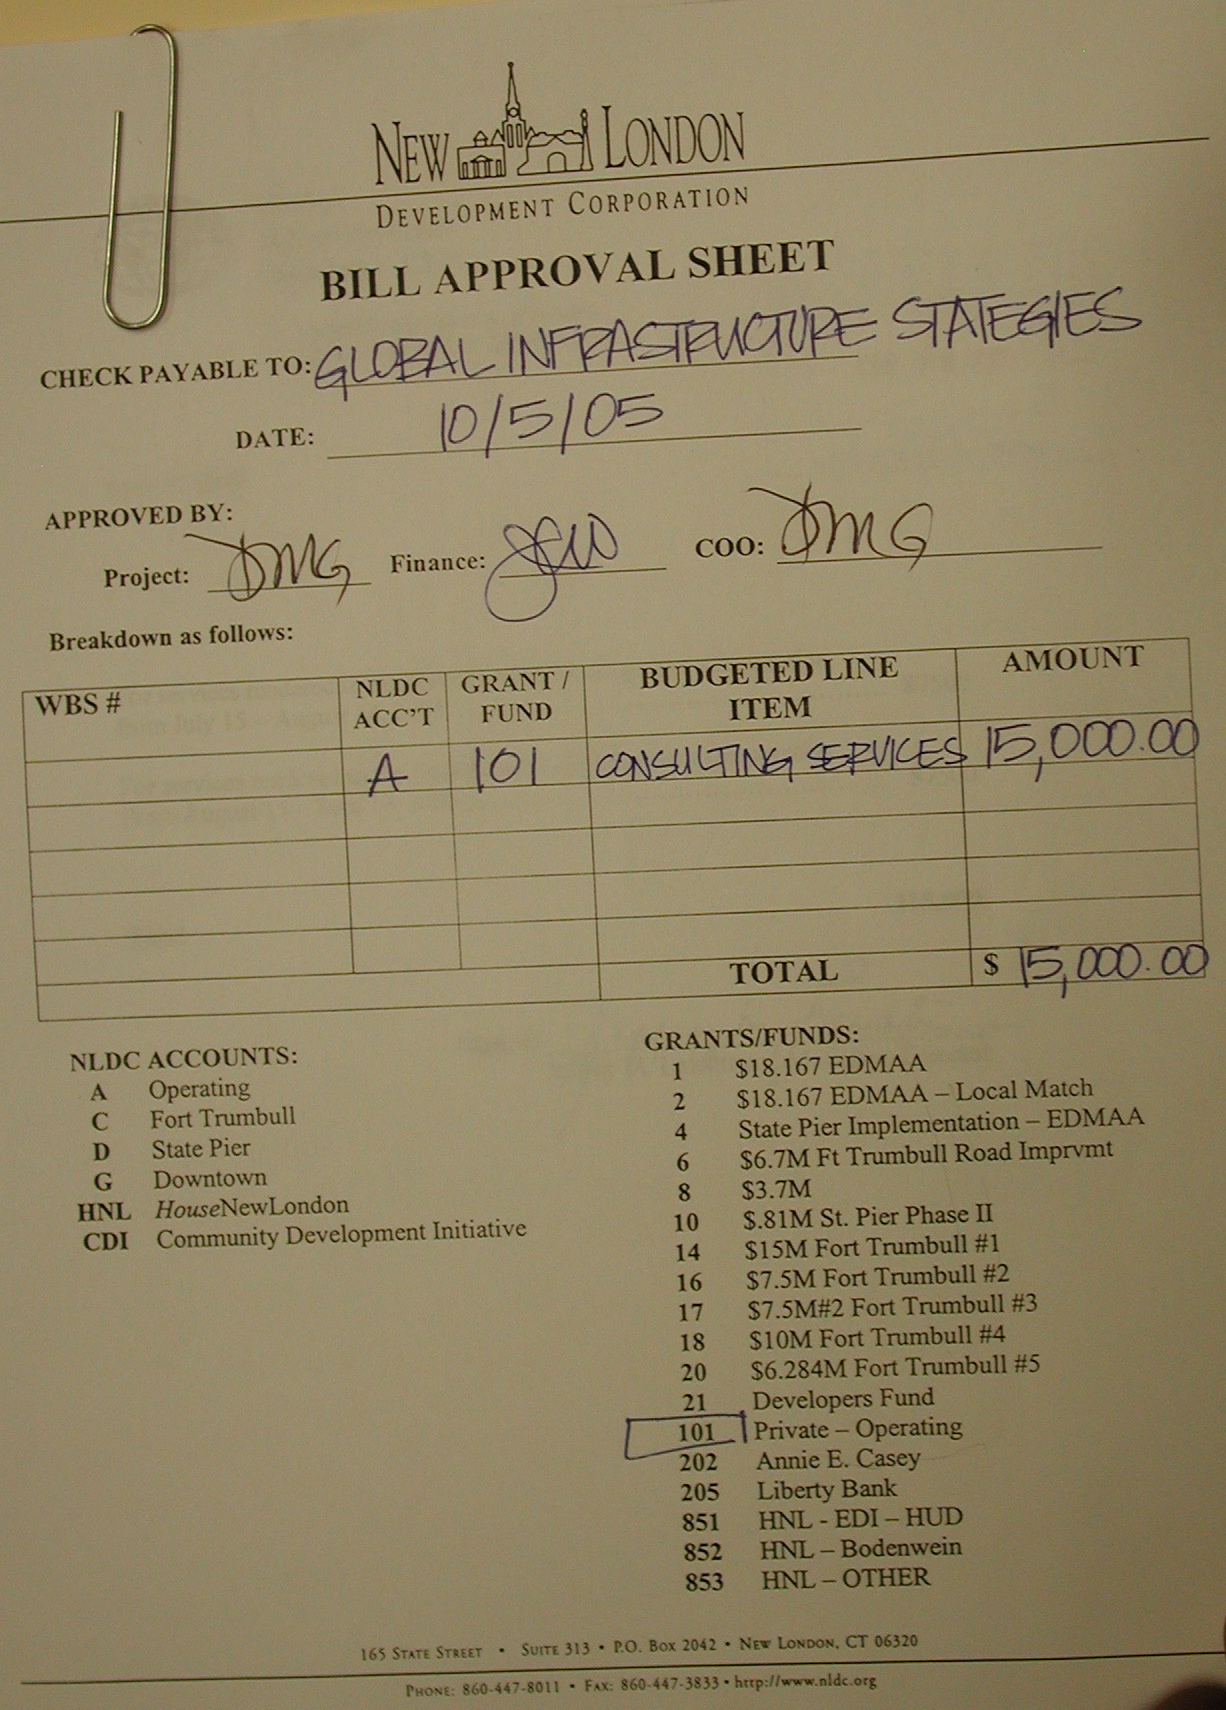 NEW LONDON
DEVELOPMENT CORPORATION
BILL APPROVAL SHEET
CHECK PAYABLE TO: GLOBAL INFRASTRUCTURE STATEGIES
DATE: 10/5/05
APPROVED BY:
Project: DMG Finance: COO: DMG
Breakdown as follows:
WBS # NLDC ACC'T GRANT / FUND BUDGETED LINE ITEM AMOUNT
A 101 CONSULTING SERVICES 15,000.00
TOTAL $ 15,000.00
NLDC ACCOUNTS:
A Operating
C Fort Trumbull
D State Pier
G Downtown
HNL HouseNewLondon
CDI Community Development Initiative
GRANTS/FUNDS:
1 $18.167 EDMAA
2 $18.167 EDMAA – Local Match
4 State Pier Implementation – EDMAA
6 $6.7M Ft Trumbull Road Imprvmt
8 $3.7M
10 $.81M St. Pier Phase II
14 $15M Fort Trumbull #1
16 $7.5M Fort Trumbull #2
17 $7.5M#2 Fort Trumbull #3
18 $10M Fort Trumbull #4
20 $6.284M Fort Trumbull #5
21 Developers Fund
101 Private – Operating
202 Annie E. Casey
205 Liberty Bank
851 HNL - EDI – HUD
852 HNL – Bodenwein
853 HNL – OTHER
165 STATE STREET • SUITE 313 • P.O. BOX 2042 • NEW LONDON, CT 06320
PHONE: 860-447-8011 • FAX: 860-447-3833 • http://www.nldc.org